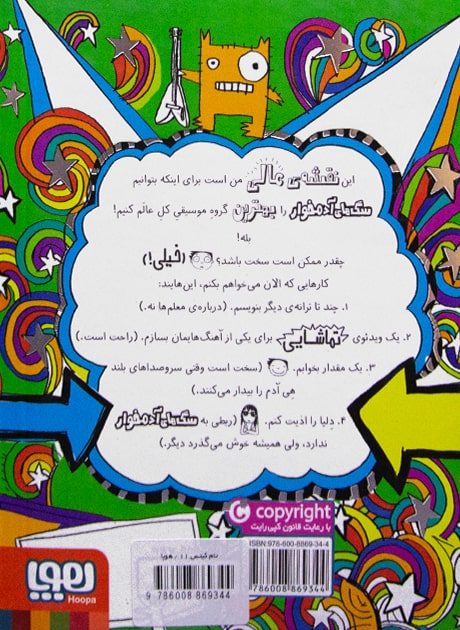 این نقشه‌ی عالی من است برای اینکه بتوانیم
سگ‌های آدمخوار را بهترین گروه موسیقی کل عالَم کنیم!
بله!
چقدر ممکن است سخت باشد؟ (خیلی!)
کارهایی که الان می‌خواهم بکنم، این‌هایند:
۱. چند تا ترانه‌ی دیگر بنویسم. (درباره‌ی معلم‌ها نه.)
۲. یک ویدئوی تماشایی برای یکی از آهنگ‌هایمان بسازم. (راحت است.)
۳. یک مقدار بخوابم. (سخت است وقتی سروصداهای بلند
هِی آدم را بیدار می‌کنند.)
۴. دِلیا را اذیت کنم. (ربطی به سگ‌های آدمخوار
ندارد، ولی همیشه خوش می‌گذرد دیگر.)
copyright
با رعایت قانون کپی‌رایت
ISBN: 978-600-8869-34-4
تام گیتس ۱۱ / هوپا
9 786008 869344
786008 869344
هوپا
Hoopa